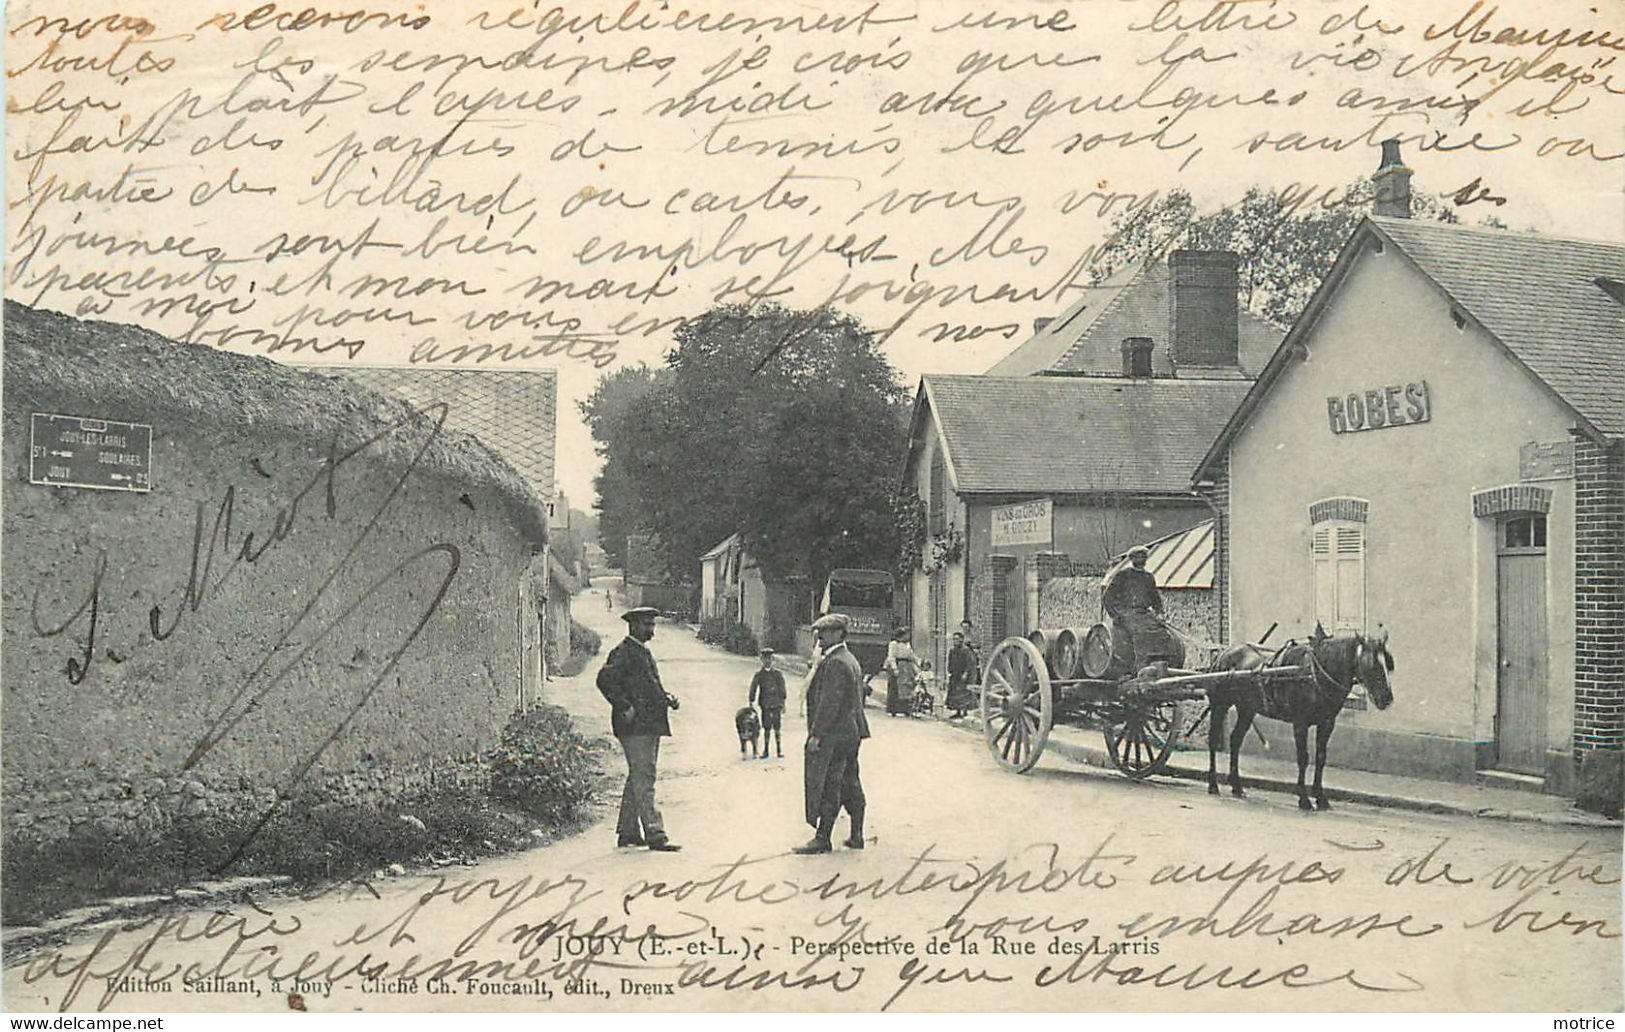 nous recevons régulièrement une lettre de Maurice
toutes les semaines, je crois que la vie Anglaise
lui plaît, l'après-midi avec quelques amis il
fait des parties de tennis, le soir, sauterie ou
partie de billard, ou cartes, vous voyez que ses
journées sont bien employées. Mes
parents et mon mari se joignent
à moi pour vous envoyer nos
bonnes amitiés
JOUY-LES-LARRIS
SOULAIRES
JOUY
ROBES
VINS EN GROS
L. Niot
soyez notre interprète auprès de votre
père et mère. Je vous embrasse bien
affectueusement ainsi que Maurice
JOUY (E.-et-L.). - Perspective de la Rue des Larris
Edition Saillant, à Jouy - Cliché Ch. Foucault, édit., Dreux
motrice